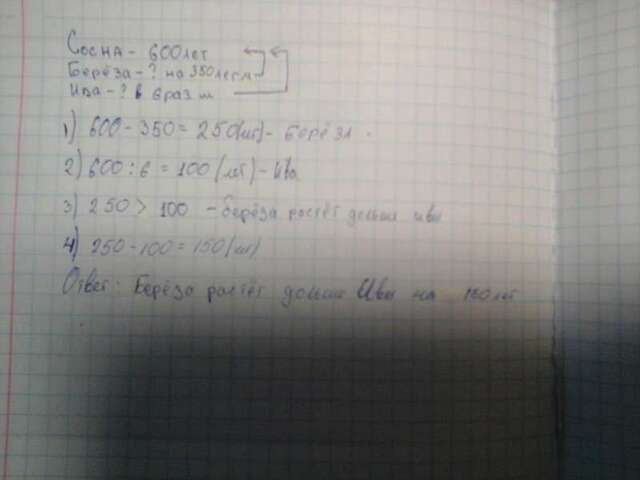 Сосна - 600 лет
Берёза - ? на 350 лет м
Ива - ? в 6 раз м
1) 600 - 350 = 250 (лет) - берёза.
2) 600 : 6 = 100 (лет) - ива
3) 250 > 100 - берёза растёт дольше ивы
4) 250 - 100 = 150 (лет)
Ответ: Берёза растёт дольше Ивы на 150 лет